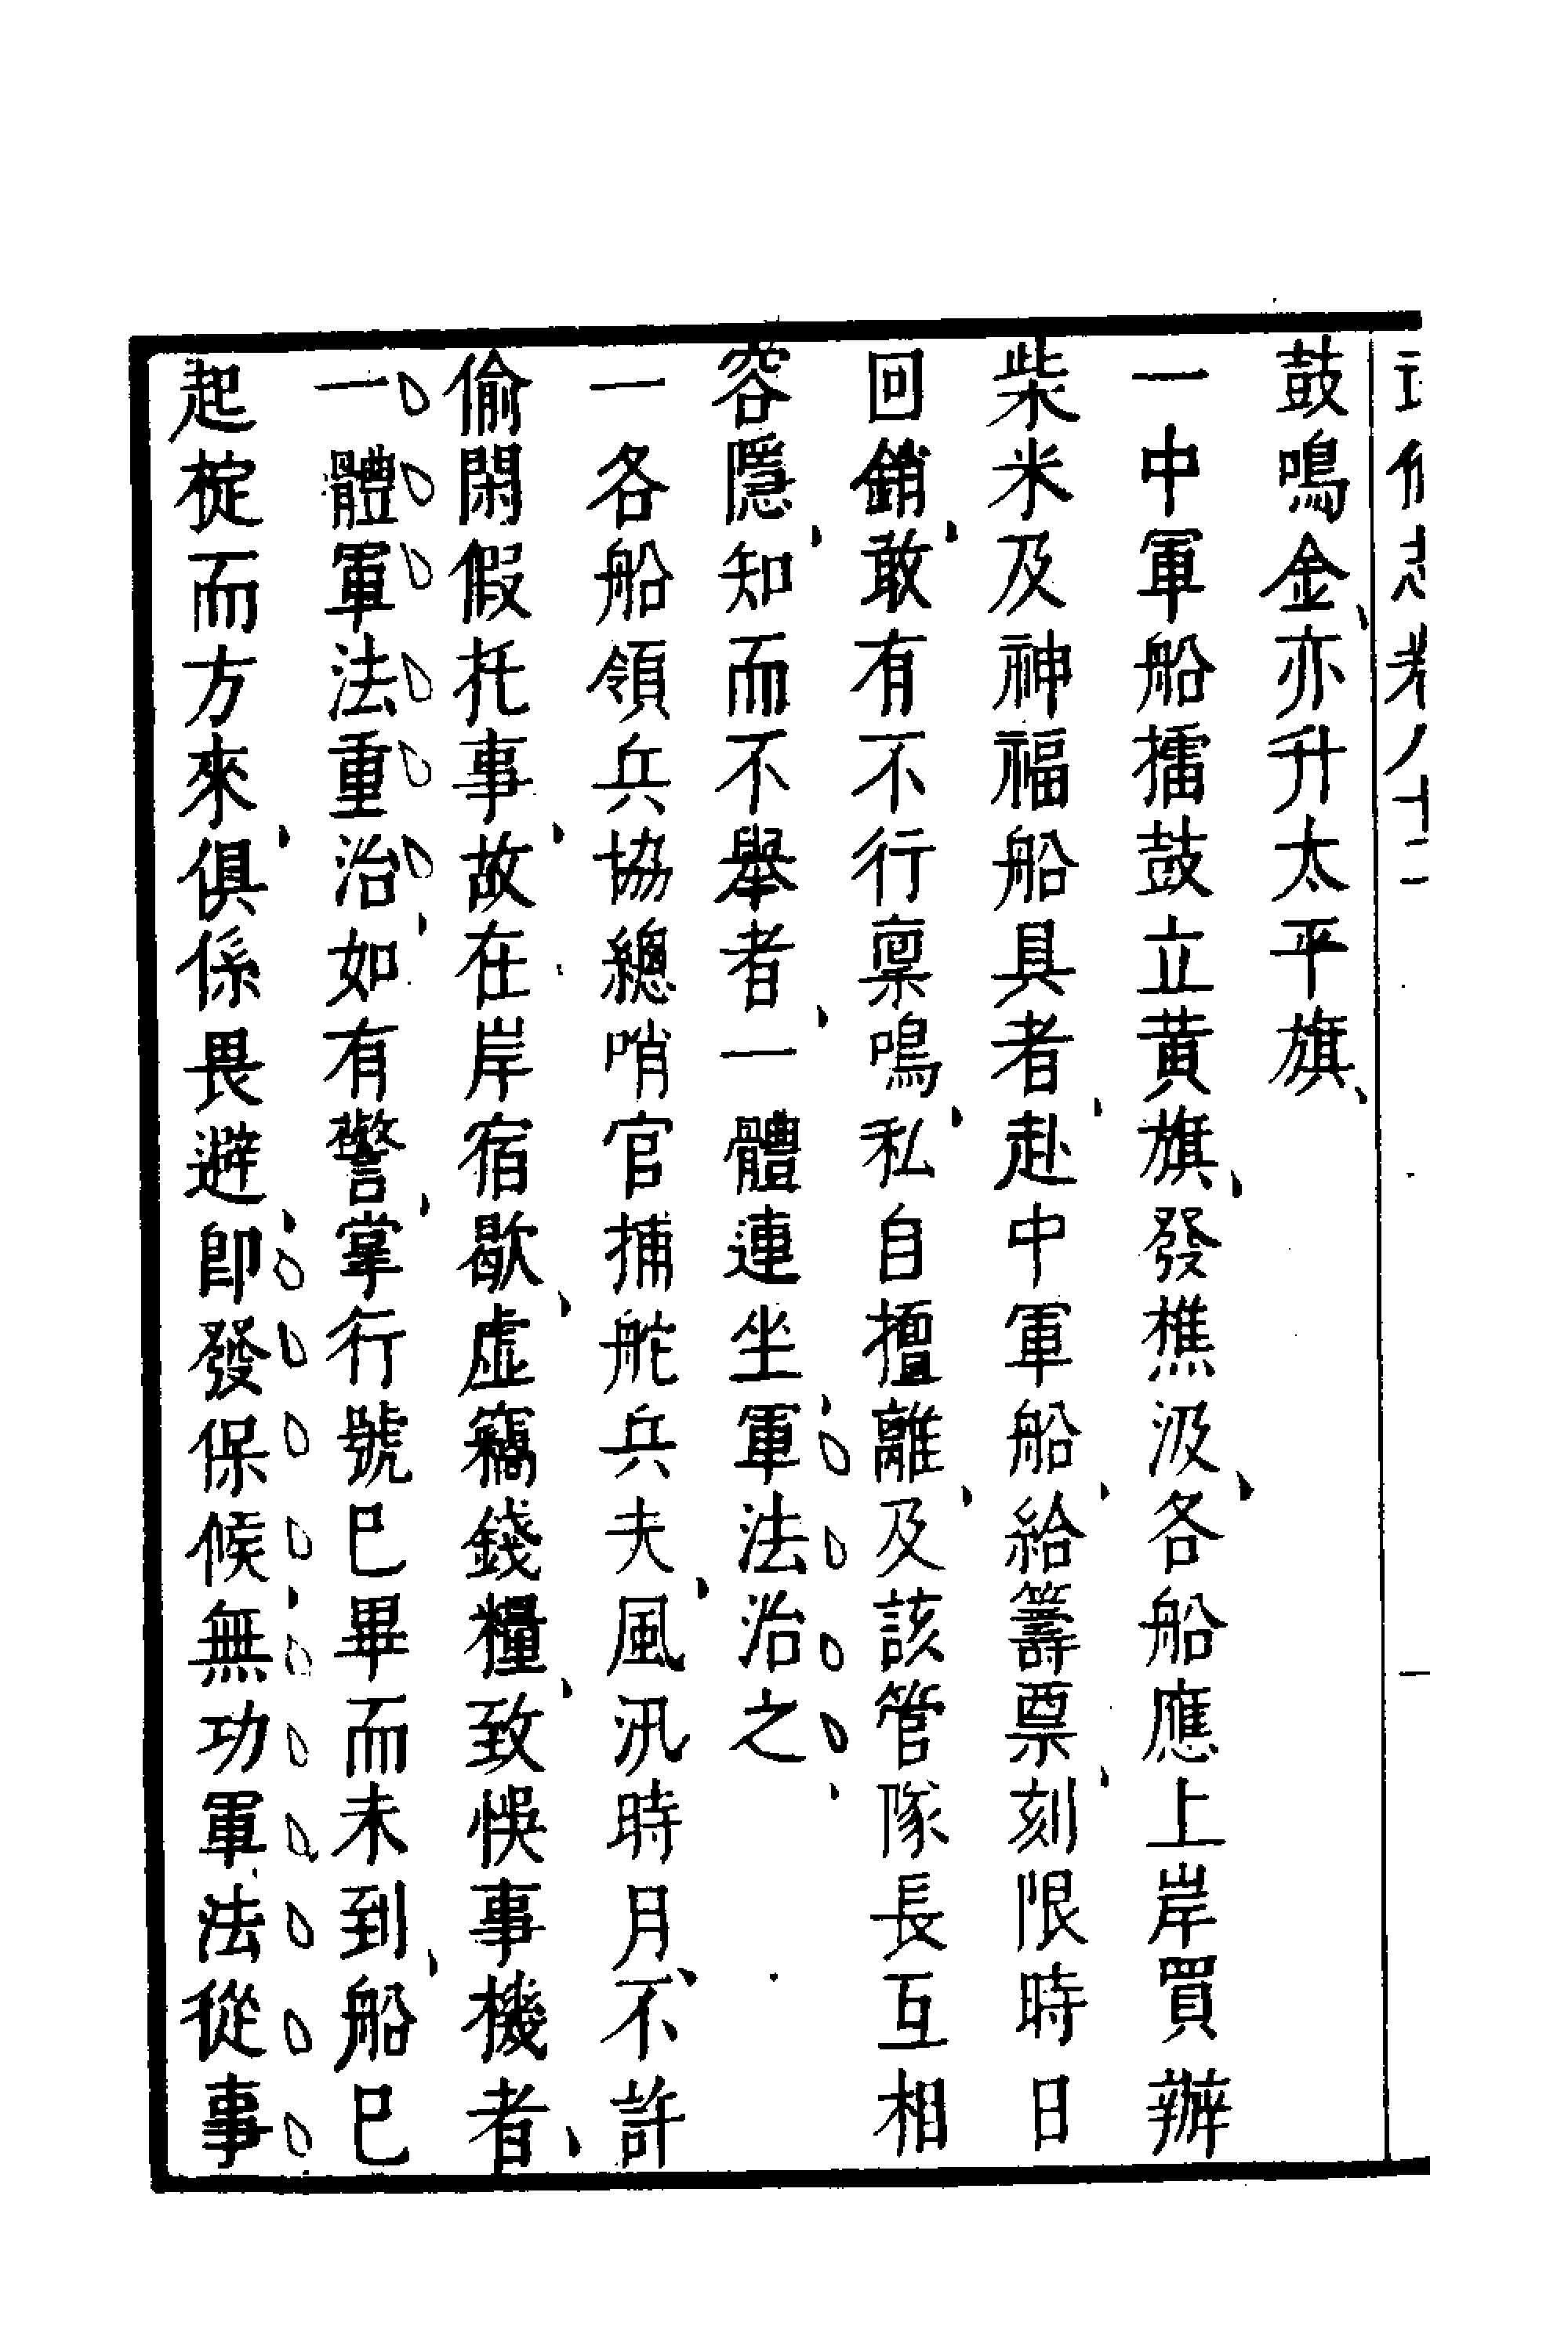 鼓鳴金亦升太平旗
一中軍船擂鼓立黄旗發樵汲各船應上岸買辦
柴米及神福船具者赴中軍船給籌票刻限時日
回銷敢有不行稟鳴私自擅離及該管隊長互相
容隱知而不舉者一體連坐軍法治之
一各船領兵協總哨官捕舵兵夫風汛時月不許
偷閑假托事故在岸宿歇虛竊錢糧致悞事機者
一體軍法重治如有警掌行號巳畢而未到船巳
起椗而方來俱係畏避即發保候無功軍法從事